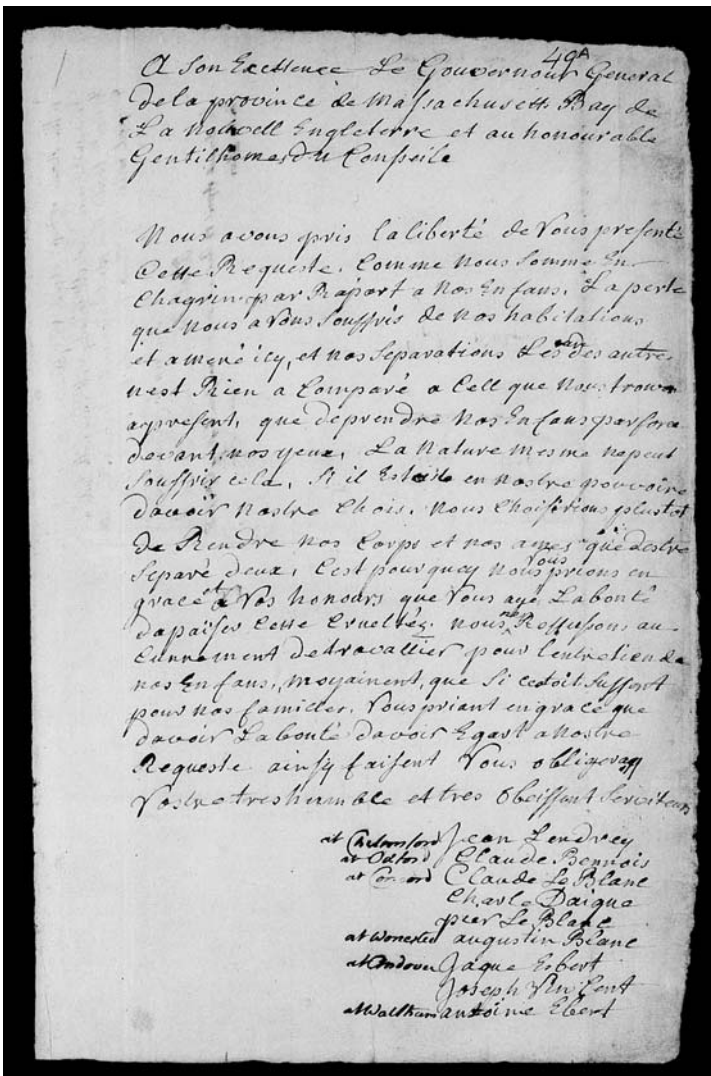 49A
A Son Excellence Le Gouvernour General
de la province de Massachusett Bay de
La Nouvell Engleterre et au honourable
Gentilhomes du Conseile
Nous avons pris la liberté de Vous presenté
Cette Requeste. Comme Nous Somme En
Chagrin par Raport a Nos Enfans. La perte
que nous avons Souffris de nos habitations
et amené icy, et nos Separations Les uns des autre
nest Rien a Comparé a Cell que Nous trouvon
apresent, que de prendre Nos Enfans par force
devant nos yeux. La Nature mesme ne peut
Souffrir cela. Si il Estoit en nostre pouvoire
davoir Nostre Chois. Nous Choisirions plustot
de Rendre nos Corps et nos ames que destre
Separé deux. Cest pourquoy nous Vous prions en
grace et a Vos honours que Vous aye La bonté
dapaiser Cette Crueltéz. nous ne Reffusons au
Cunnement de travallier pour lentretien de
nos Enfans, moyainent, que Si cetoit Suffent
pour nos familles. Vous priant en grace que
davoir La bonté davoir Egart a Nostre
Requeste ainsy faisent Vous obligeray
Vostre tres humble et tres Obeissent Serviteurs
at Chelmsford Jean Lendrey
at Oxford Claude Bennois
at Concord Claude Le Blanc
Charle Daigue
pier Le Blanc
at Worcester augustin Blanc
at Andover Jaque Esbert
Joseph Vincent
at Waltham antoine Ebert